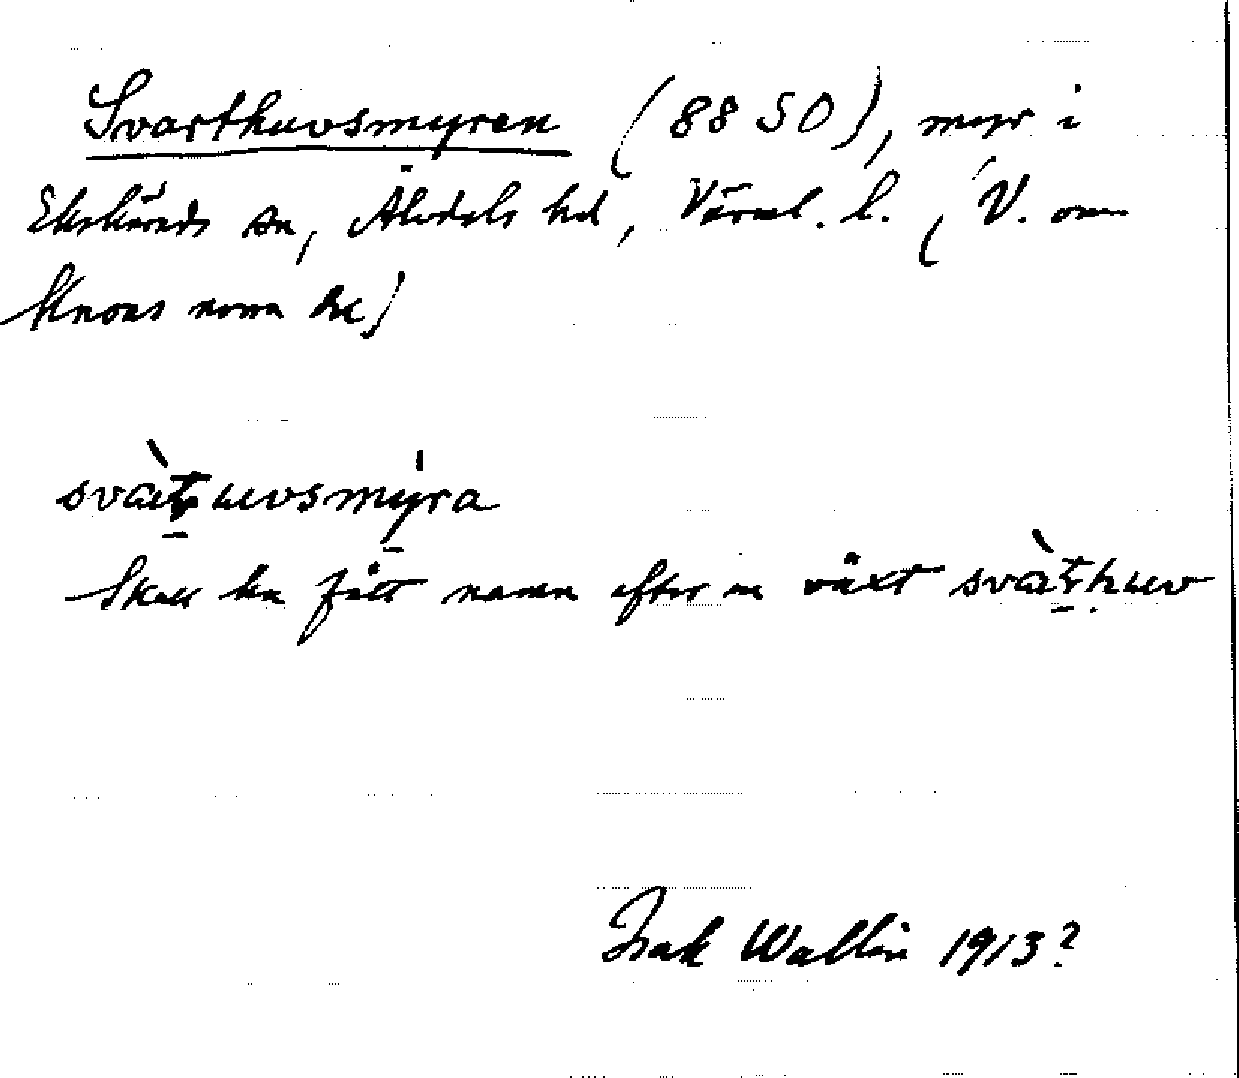 Svarthuvsmyren (88 SO), myr i
Ekshärads sn, Älvdals hd, Värml. l. (V. om
Knons norra
svàt̠uvsmy̠ra
Skall ha fått namn efter en växt svàt̠huv
Isak Wallin 1913?